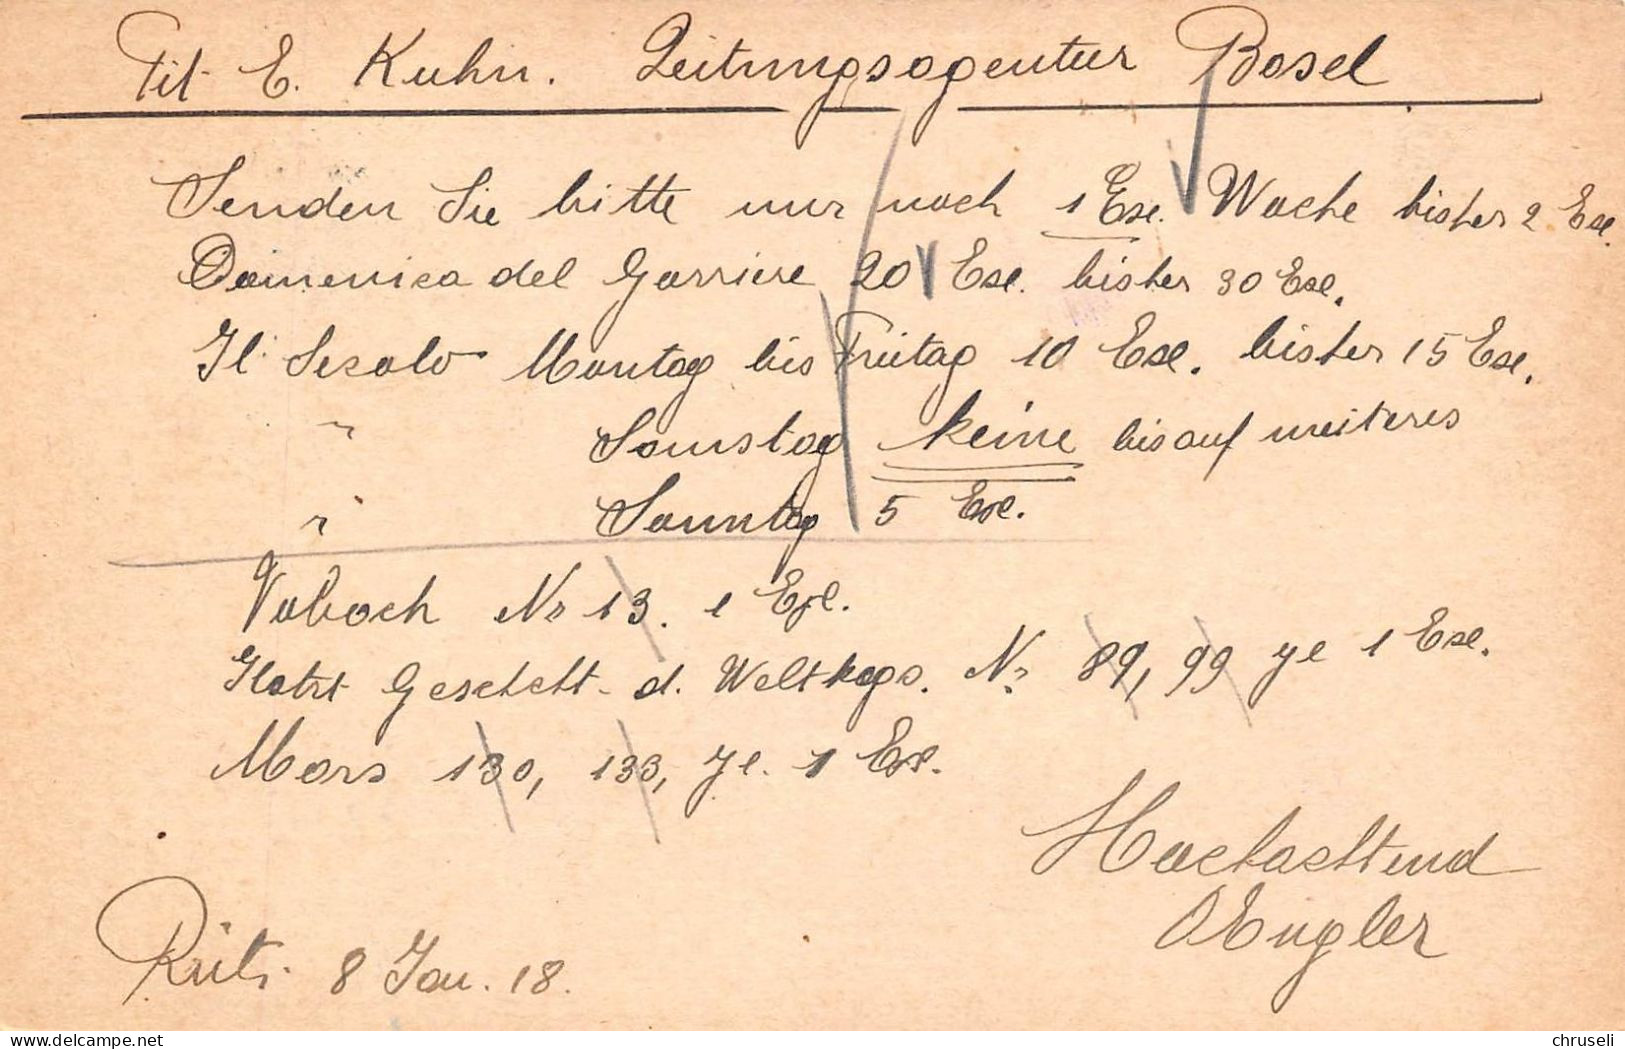 Tit. E. Kuhn. Zeitungsagentur Basel
Senden Sie bitte nur noch 1 Exe. Woche bisher 2 Exe.
Domenica del Corriere 20 Exe. bisher 30 Exe.
Il Secolo Montag bis Freitag 10 Exe. bisher 15 Exe.
" Samstag keine bis auf weiteres
" Sonntag 5 Exe.
Vobach No 13. 1 Exe.
Gescht. d. Weltkgs. No 89, 99 je 1 Exe.
Mars 130, 133, je. 1 Exe.
Hochachtend
Engler
Rüti. 8 Jan. 18.
delcampe.net
chruseli